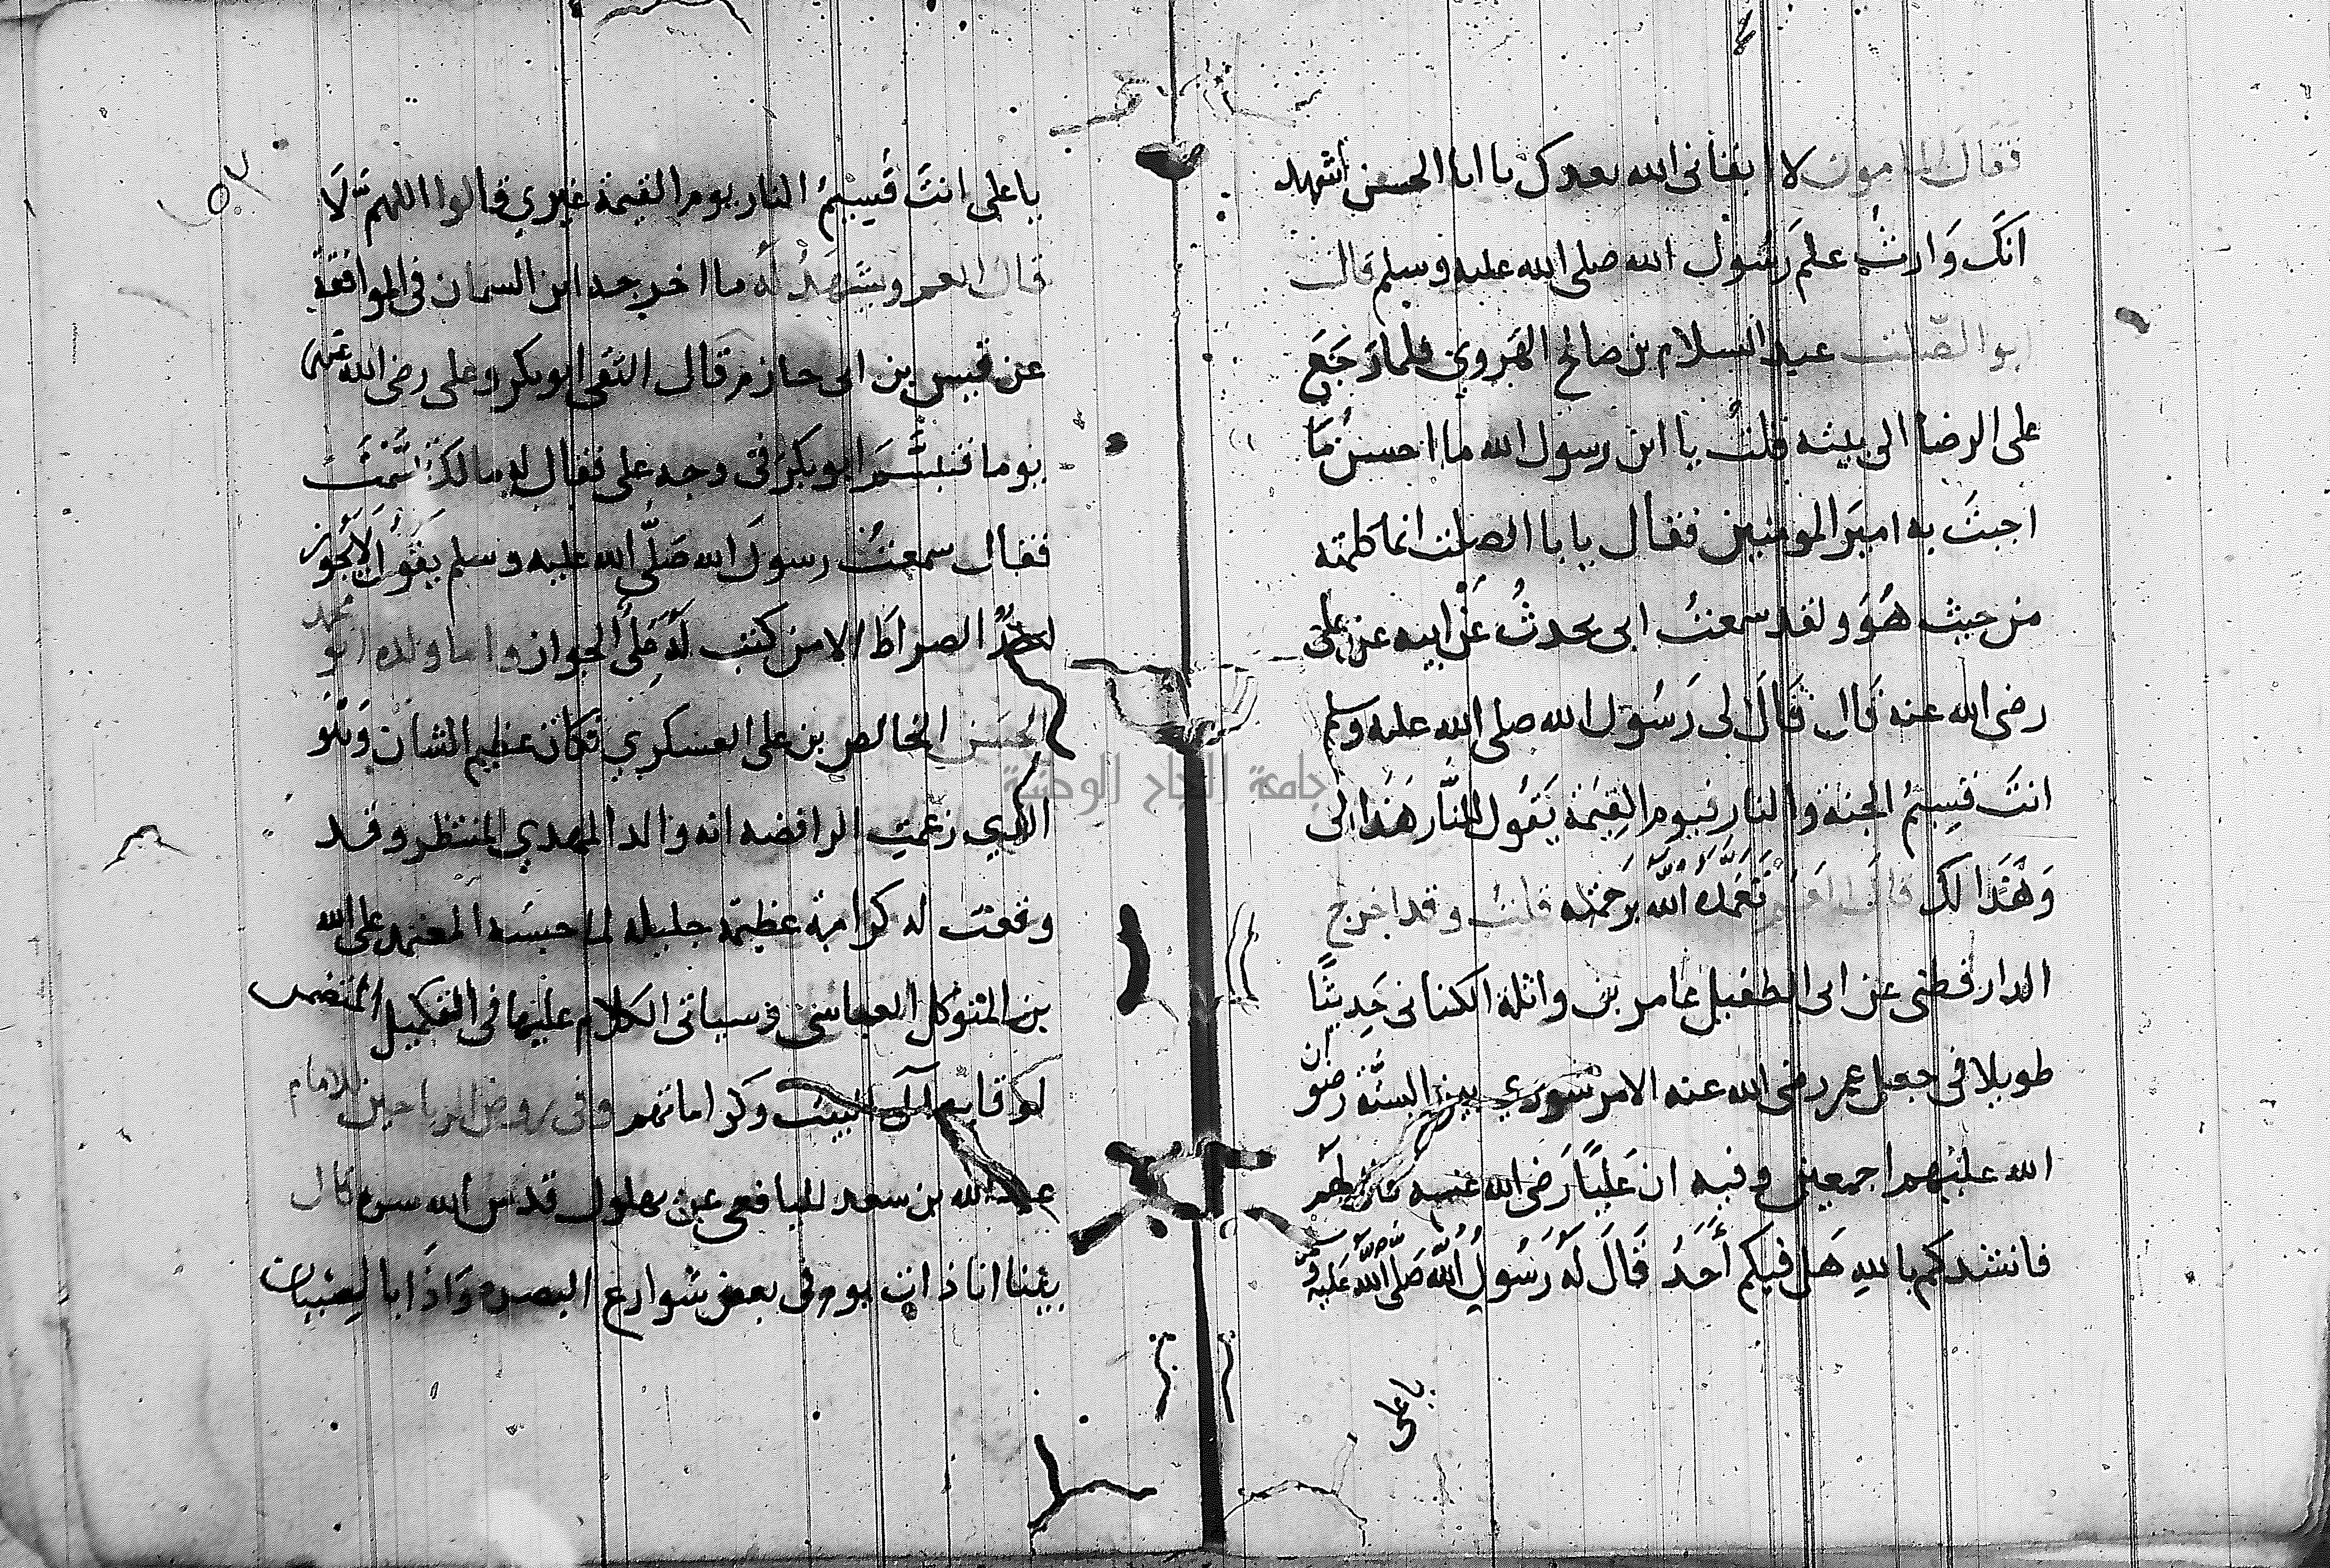 فقال المامون لا ابقاني الله بعدك يا ابا الحسن اشهد
انك وارث علم رسول الله صلى الله عليه وسلم قال
ابو الصلت عبد السلام بن صالح الهروي فلما رجع
على الرضا الى بيته قلت يا ابن رسول الله ما احسن ما
اجبت به امير المومنين فقال يا با الصلت انما كلمته
من حيث هو ولقد سمعت ابي يحدث عن ابيه عن على
رضى الله عنه قال قال لى رسول الله صلى الله عليه وسلم
انت قسيم الجنة والنار فيوم القيمة يقول للنار هذا لى
وهذا لك قال تغمده الله برحمته قلت وقد اخرج
الدارقطنى عن ابى الطفيل عامر بن واثلة الكنانى حديثا
طويلا فى جعل عمر رضى الله عنه الامر شورى بين الستة رضوان
الله عليهم اجمعين وفيه ان عليا رضى الله عنه قال لهم
فانشدكم بالله هل فيكم احد قال له رسول الله صلى الله عليه
يا على
يا على انت قسيم النار يوم القيمة غيري قالوا اللهم لا
قال العم ويشهد له ما اخرجه ابن السمان فى الموافقة
عن قيس بن ابى حازم قال التقى ابو بكر وعلى رضى الله عنهما
يوما فتبسم ابو بكر فى وجه على فقال له مالك تبسمت
فقال سمعت رسول الله صلى الله عليه وسلم يقول لا يجوز
احد الصراط الا من كتب له على الجواز واما ولده ابو محمد
الحسن الخالص بن على العسكري فكان عظيم الشان وهو
الذي زعمت الرافضه انه والد المهدي المنتظر وقد
وقعت له كرامة عظيمة جليله لما حبسه المعتمد على الله
بن المتوكل العباسى وسياتى الكلام عليها فى التكميل المتضمن
لوقايع آل البيت وكراماتهم وفى روض الرياحين للامام
عبد الله بن سعد لليافعى عن بهلول قدس الله سره قال
بينما انا ذات يوم فى بعض شوارع البصره واذا بالصبيان
جامعة النجاح الوطنية